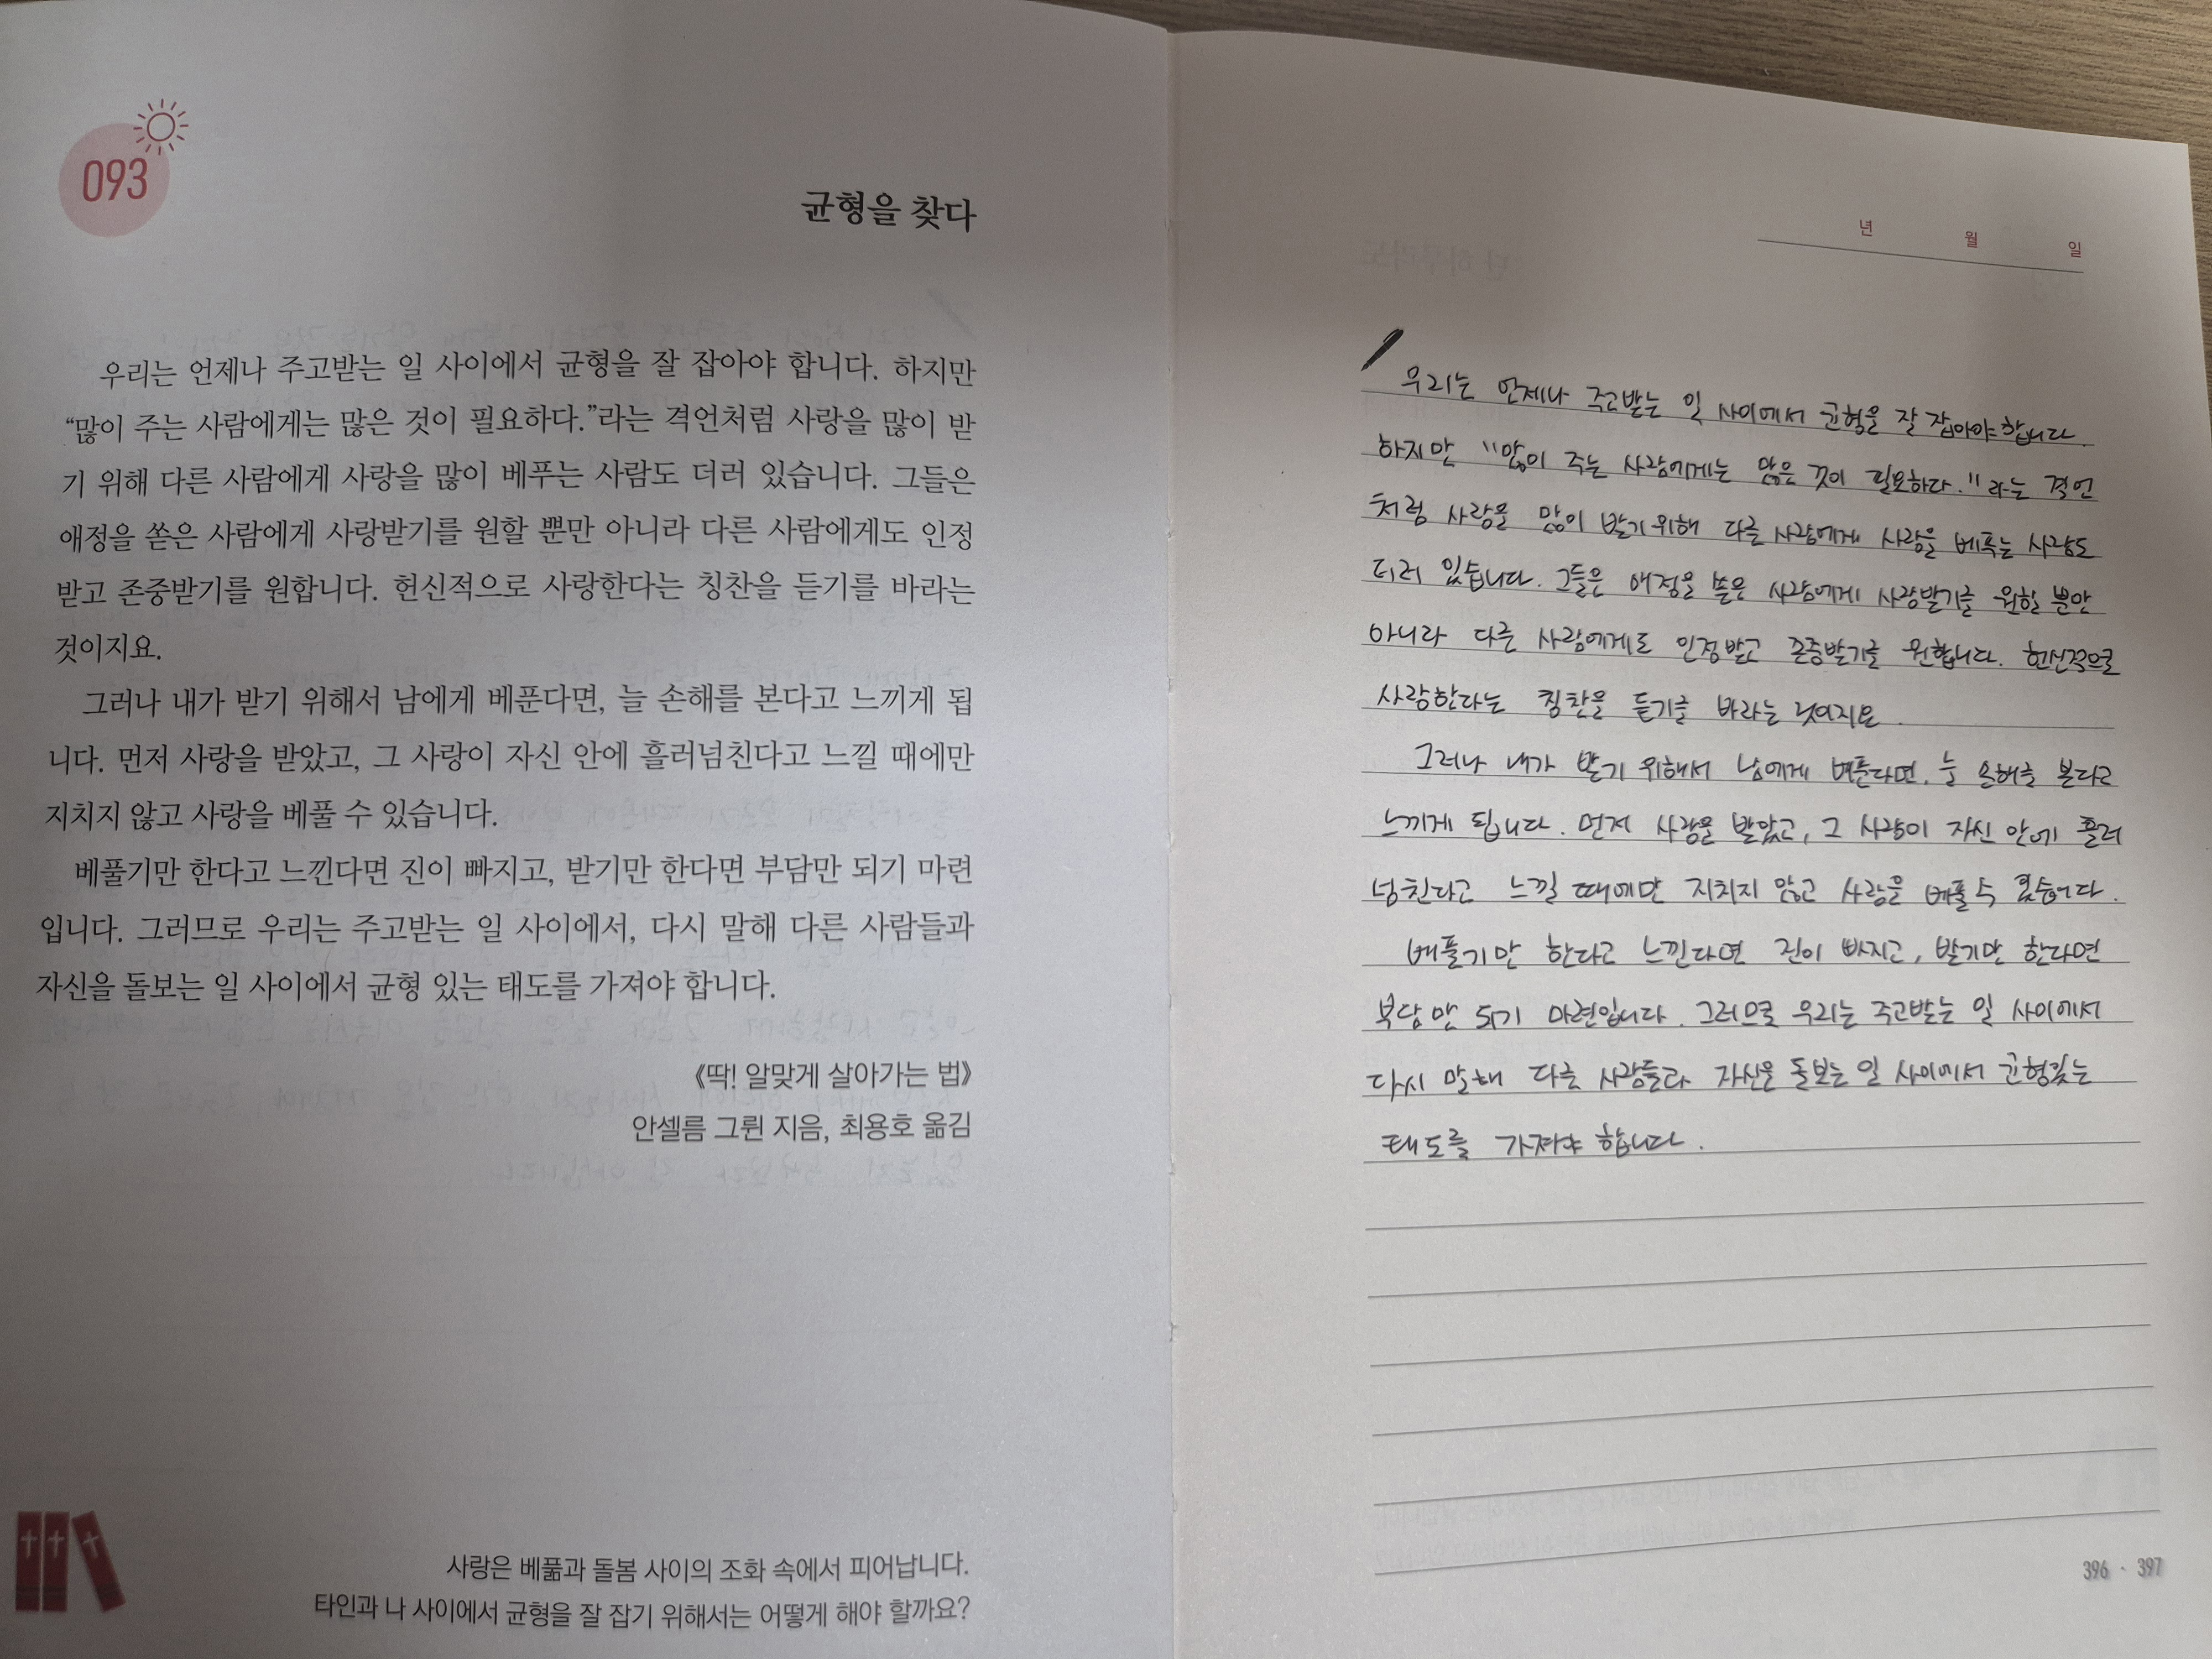 093
균형을 찾다
우리는 언제나 주고받는 일 사이에서 균형을 잘 잡아야 합니다. 하지만
“많이 주는 사람에게는 많은 것이 필요하다.”라는 격언처럼 사랑을 많이 받
기 위해 다른 사람에게 사랑을 많이 베푸는 사람도 더러 있습니다. 그들은
애정을 쏟은 사람에게 사랑받기를 원할 뿐만 아니라 다른 사람에게도 인정
받고 존중받기를 원합니다. 헌신적으로 사랑한다는 칭찬을 듣기를 바라는
것이지요.
그러나 내가 받기 위해서 남에게 베푼다면, 늘 손해를 본다고 느끼게 됩
니다. 먼저 사랑을 받았고, 그 사랑이 자신 안에 흘러넘친다고 느낄 때에만
지치지 않고 사랑을 베풀 수 있습니다.
베풀기만 한다고 느낀다면 진이 빠지고, 받기만 한다면 부담만 되기 마련
입니다. 그러므로 우리는 주고받는 일 사이에서, 다시 말해 다른 사람들과
자신을 돌보는 일 사이에서 균형 있는 태도를 가져야 합니다.
《딱! 알맞게 살아가는 법》
안셀름 그륀 지음, 최용호 옮김
사랑은 베풂과 돌봄 사이의 조화 속에서 피어납니다.
타인과 나 사이에서 균형을 잘 잡기 위해서는 어떻게 해야 할까요?
년 월 일
우리는 언제나 주고받는 일 사이에서 균형을 잘 잡아야합니다.
하지만 "많이 주는 사람에게는 많은 것이 필요하다." 라는 격언
처럼 사랑을 많이 받기위해 다른 사람에게 사랑을 베푸는 사람도
더러 있습니다. 그들은 애정을 쏟은 사람에게 사랑받기를 원할 뿐만
아니라 다른 사람에게도 인정받고 존중받기를 원합니다. 헌신적으로
사랑한다는 칭찬을 듣기를 바라는 것이지요.
그러나 내가 받기 위해서 남에게 베푼다면, 늘 손해를 본다고
느끼게 됩니다. 먼저 사랑을 받았고, 그 사랑이 자신 안에 흘러
넘친다고 느낄 때에만 지치지 않고 사랑을 베풀 수
베풀기만 한다고 느낀다면 진이 빠지고, 받기만 한다면
부담만 되기 마련입니다. 그러므로 우리는 주고받는 일 사이에서
다시 말해 다른 사람들과 자신을 돌보는 일 사이에서 균형있는
태도를 가져야 합니다.
396 · 397